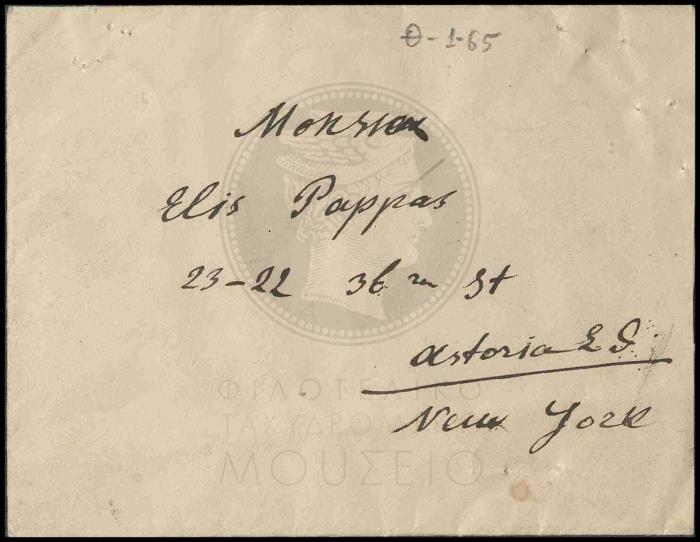 Θ-1-65
Monsieu
Elis Pappas
23-22 36 St
Astoria L I.
New York
ΦΙΛΟΤΕΛΙΚΟ
ΤΑΧΥΔΡΟΜΙΚΟ
ΜΟΥΣΕΙΟ